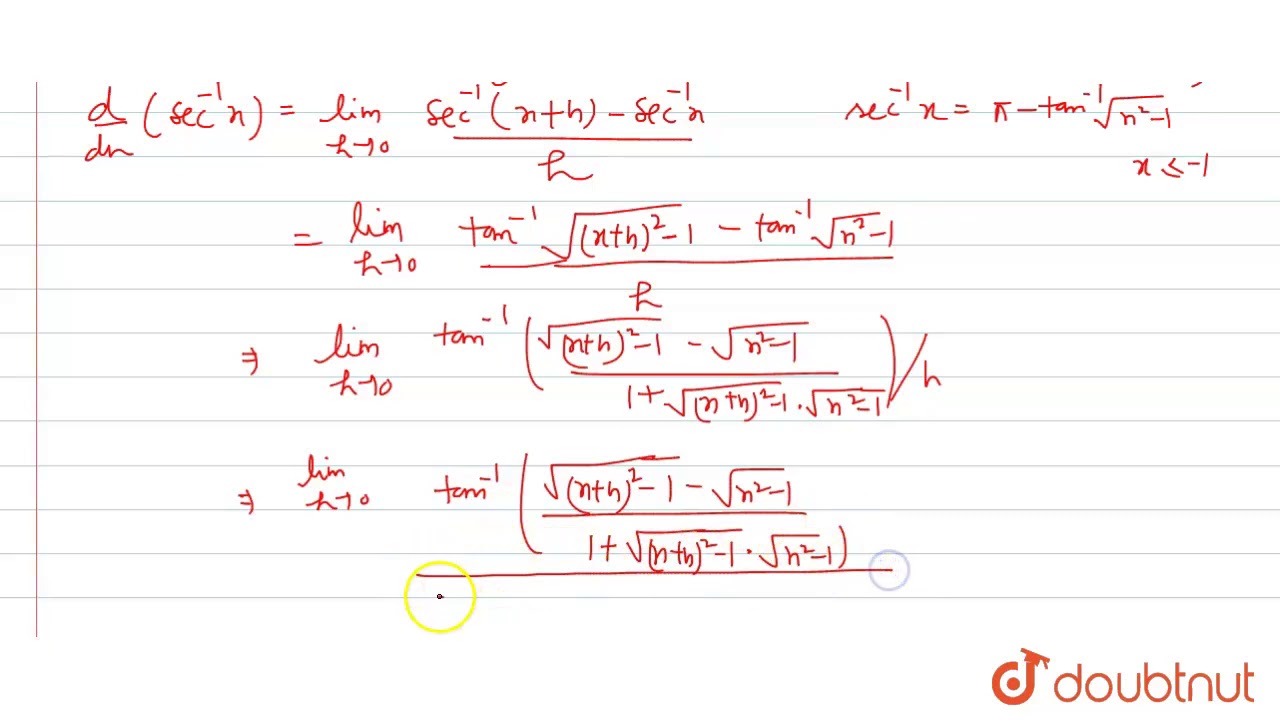 d/dx (sec⁻¹x) = lim h→0 (sec⁻¹(x+h) − sec⁻¹x)/h    sec⁻¹x = π − tan⁻¹√(x²−1)
x ≤ −1
= lim h→0 (tan⁻¹√((x+h)²−1) − tan⁻¹√(x²−1))/h
⇒ lim h→0 tan⁻¹((√((x+h)²−1) − √(x²−1))/(1+√((x+h)²−1)·√(x²−1)))/h
⇒ lim h→0 tan⁻¹((√((x+h)²−1) − √(x²−1))/(1+√((x+h)²−1)·√(x²−1)))
doubtnut